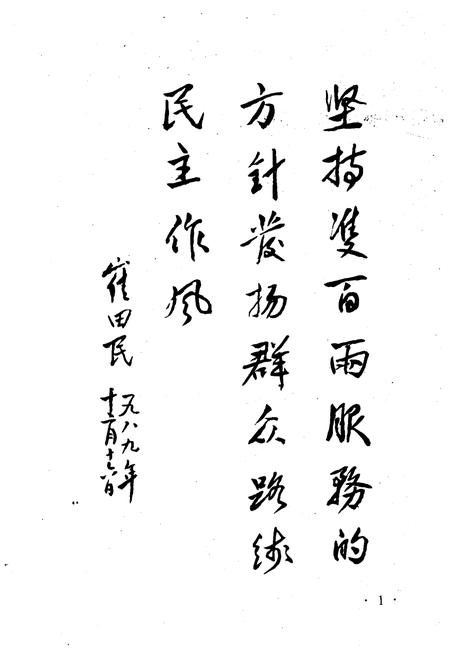 坚持双百两服务的
方针发扬群众路线
民主作风
崔田民
一九八九年
十二月十六日
· 1 ·